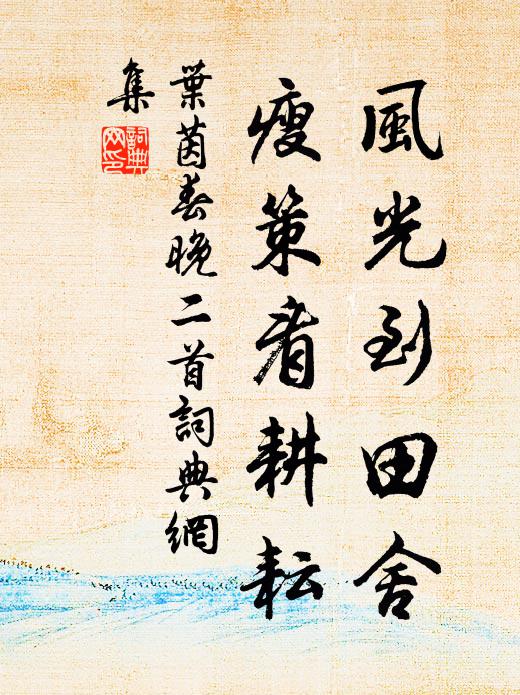 風光到田舍
瘦策看耕耘
葉茵春晚二首詞典網
集
詞典網印